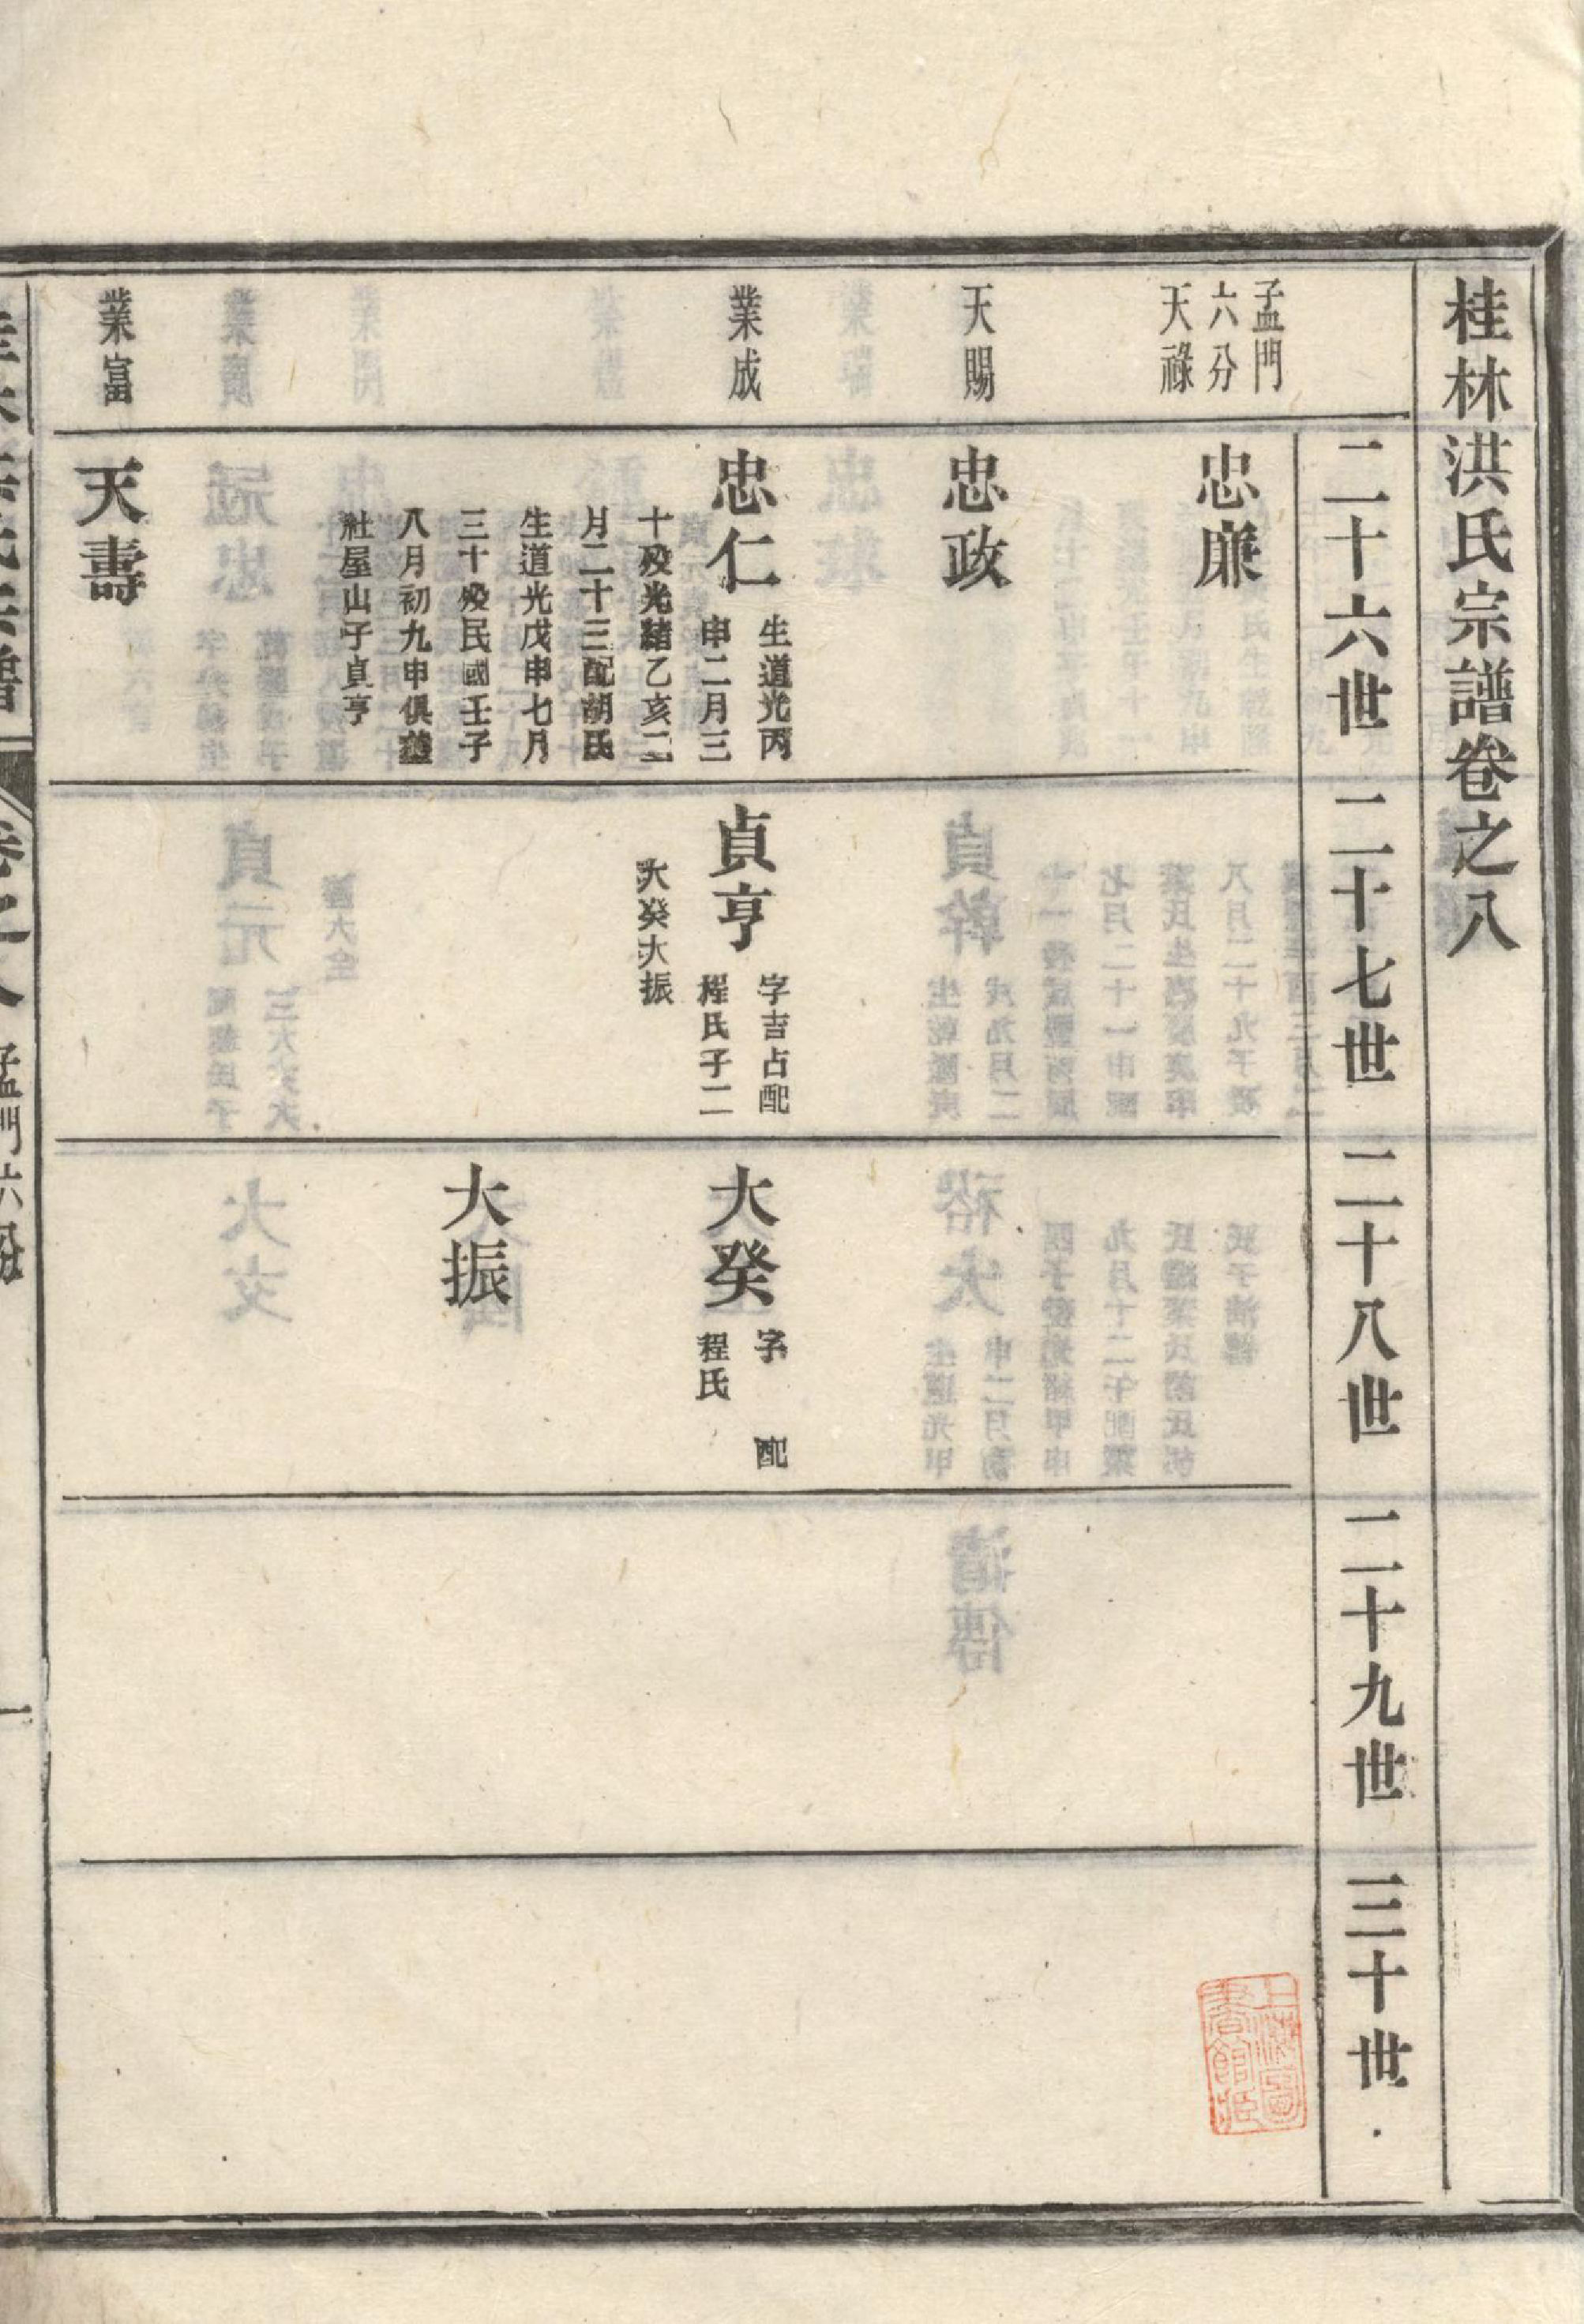 桂林洪氏宗譜卷之八
二十六世
二十七世
二十八世
二十九世
三十世
孟門
六分
天祿
忠廉
天賜
忠政
業成
忠仁
生道光丙
申二月三
十殁光緒乙亥二
月二十三配胡氏
生道光戊申七月
三十殁民國壬子
八月初九申俱葬
社屋山子貞亨
貞亨
字吉占配
程氏子二
大癸大振
大癸
字 配
程氏
大振
業富
天壽
卷之八
孟門六分
一
上海圖
書館藏